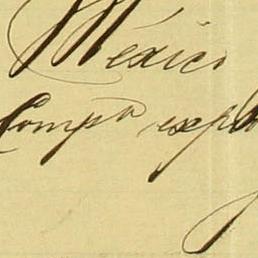 México
Compª explo